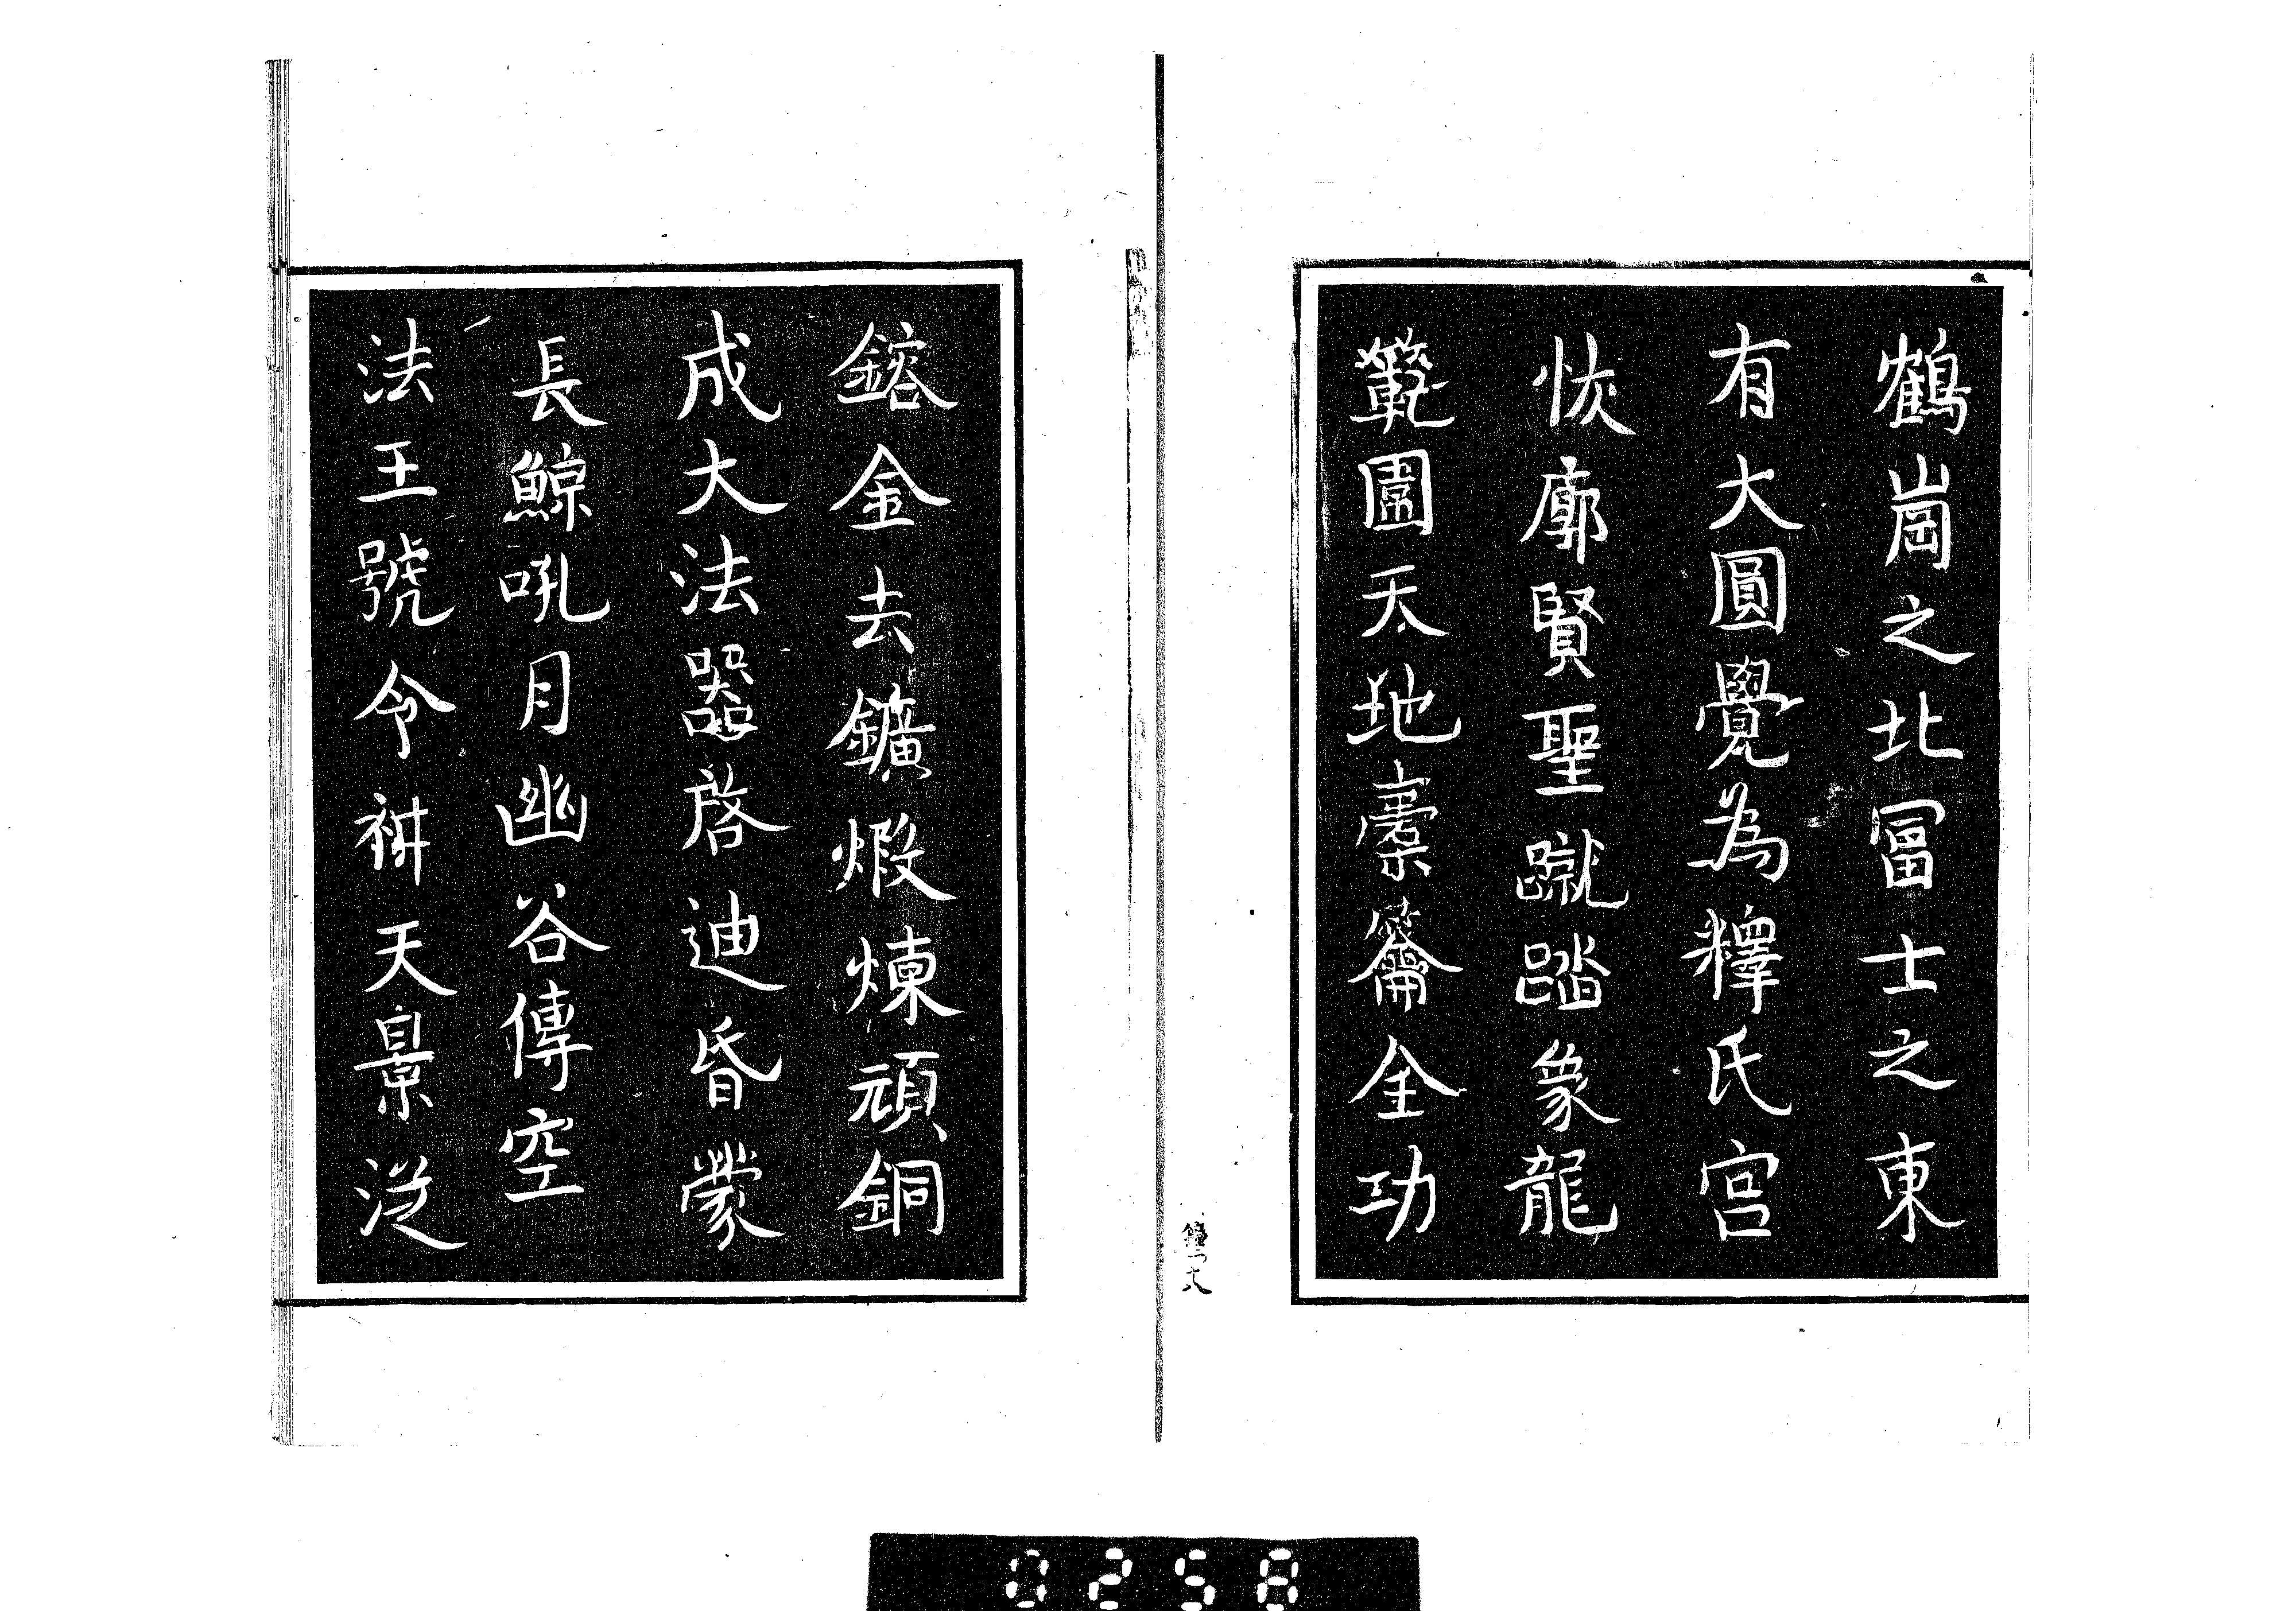 鶴崗之北冨士之東
有大圓覺為釋氏宮
恢廓賢聖蹴踏象龍
範圍天地橐籥全功
鎔金去鑛煅煉頑銅
成大法器啓迪昏蒙
長鯨吼月幽谷傳空
法王號令神天景從
0258